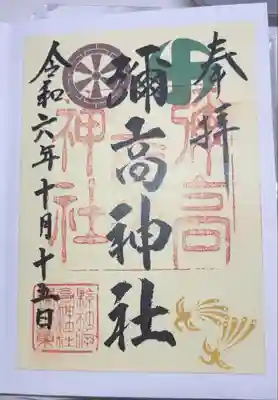 奉拝
彌高神社
令和六年十月十五日
彌高
神社